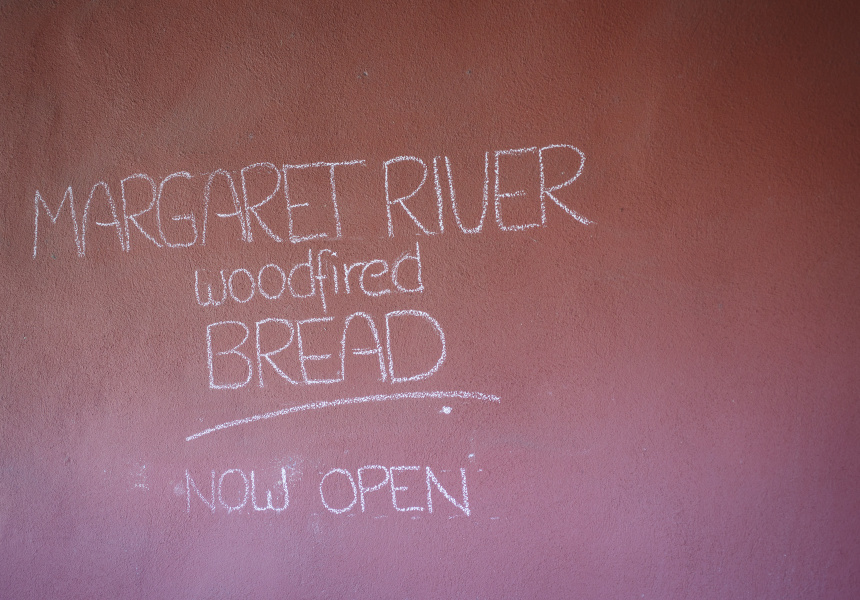 MARGARET RIVER
woodfired
BREAD
NOW OPEN